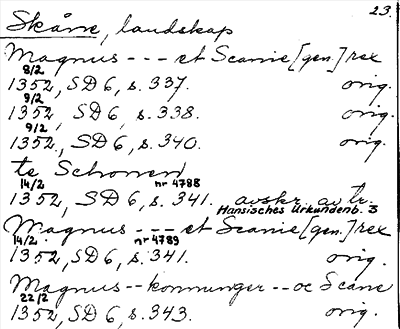 23.
Skåne, landskap
Magnus --- et Scanie [gen.] rex
8/2
1352, SD 6, s. 337. orig.
9/2
1352, SD 6, s. 338. orig.
9/2
1352, SD 6, s. 340. orig.
te Schonen
14/2 nr 4788
1352, SD 6, s. 341. avskr. av tr.
Hansisches Urkundenb. 3
Magnus --- et Scanie [gen.] rex
14/2 nr 4789
1352, SD 6, s. 341. orig.
Magnus -- konnunger -- oc Scane
22/2
1352, SD 6, s. 343. orig.